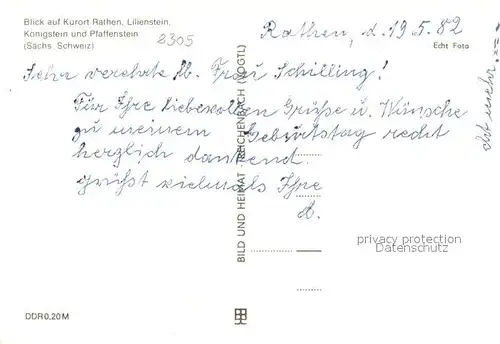 Blick auf Kurort Rathen, Lilienstein,
Königstein und Pfaffenstein
(Sächs. Schweiz)
2305
Rathen, d. 19.5.82
Echt Foto
Sehr verehrte lb. Frau Schilling!
Für Ihre liebevollen Grüße u. Wünsche
zu meinem Geburtstag recht
herzlich dankend
grüßt vielmals Ihre
BILD UND HEIMAT REICHENBACH (VOGTL)
privacy protection
Datenschutz
DDR 0,20 M